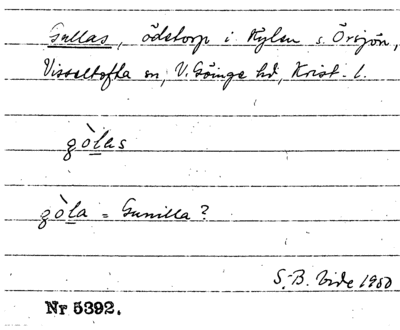 Gullas, ödetorp i Kylsn s. Örsjön,
Visseltofta sn, V. Göinge hd, Krist. l.
gòlas
gòla = Gunilla?
S.-B. Vide 1950
Nr 5392.